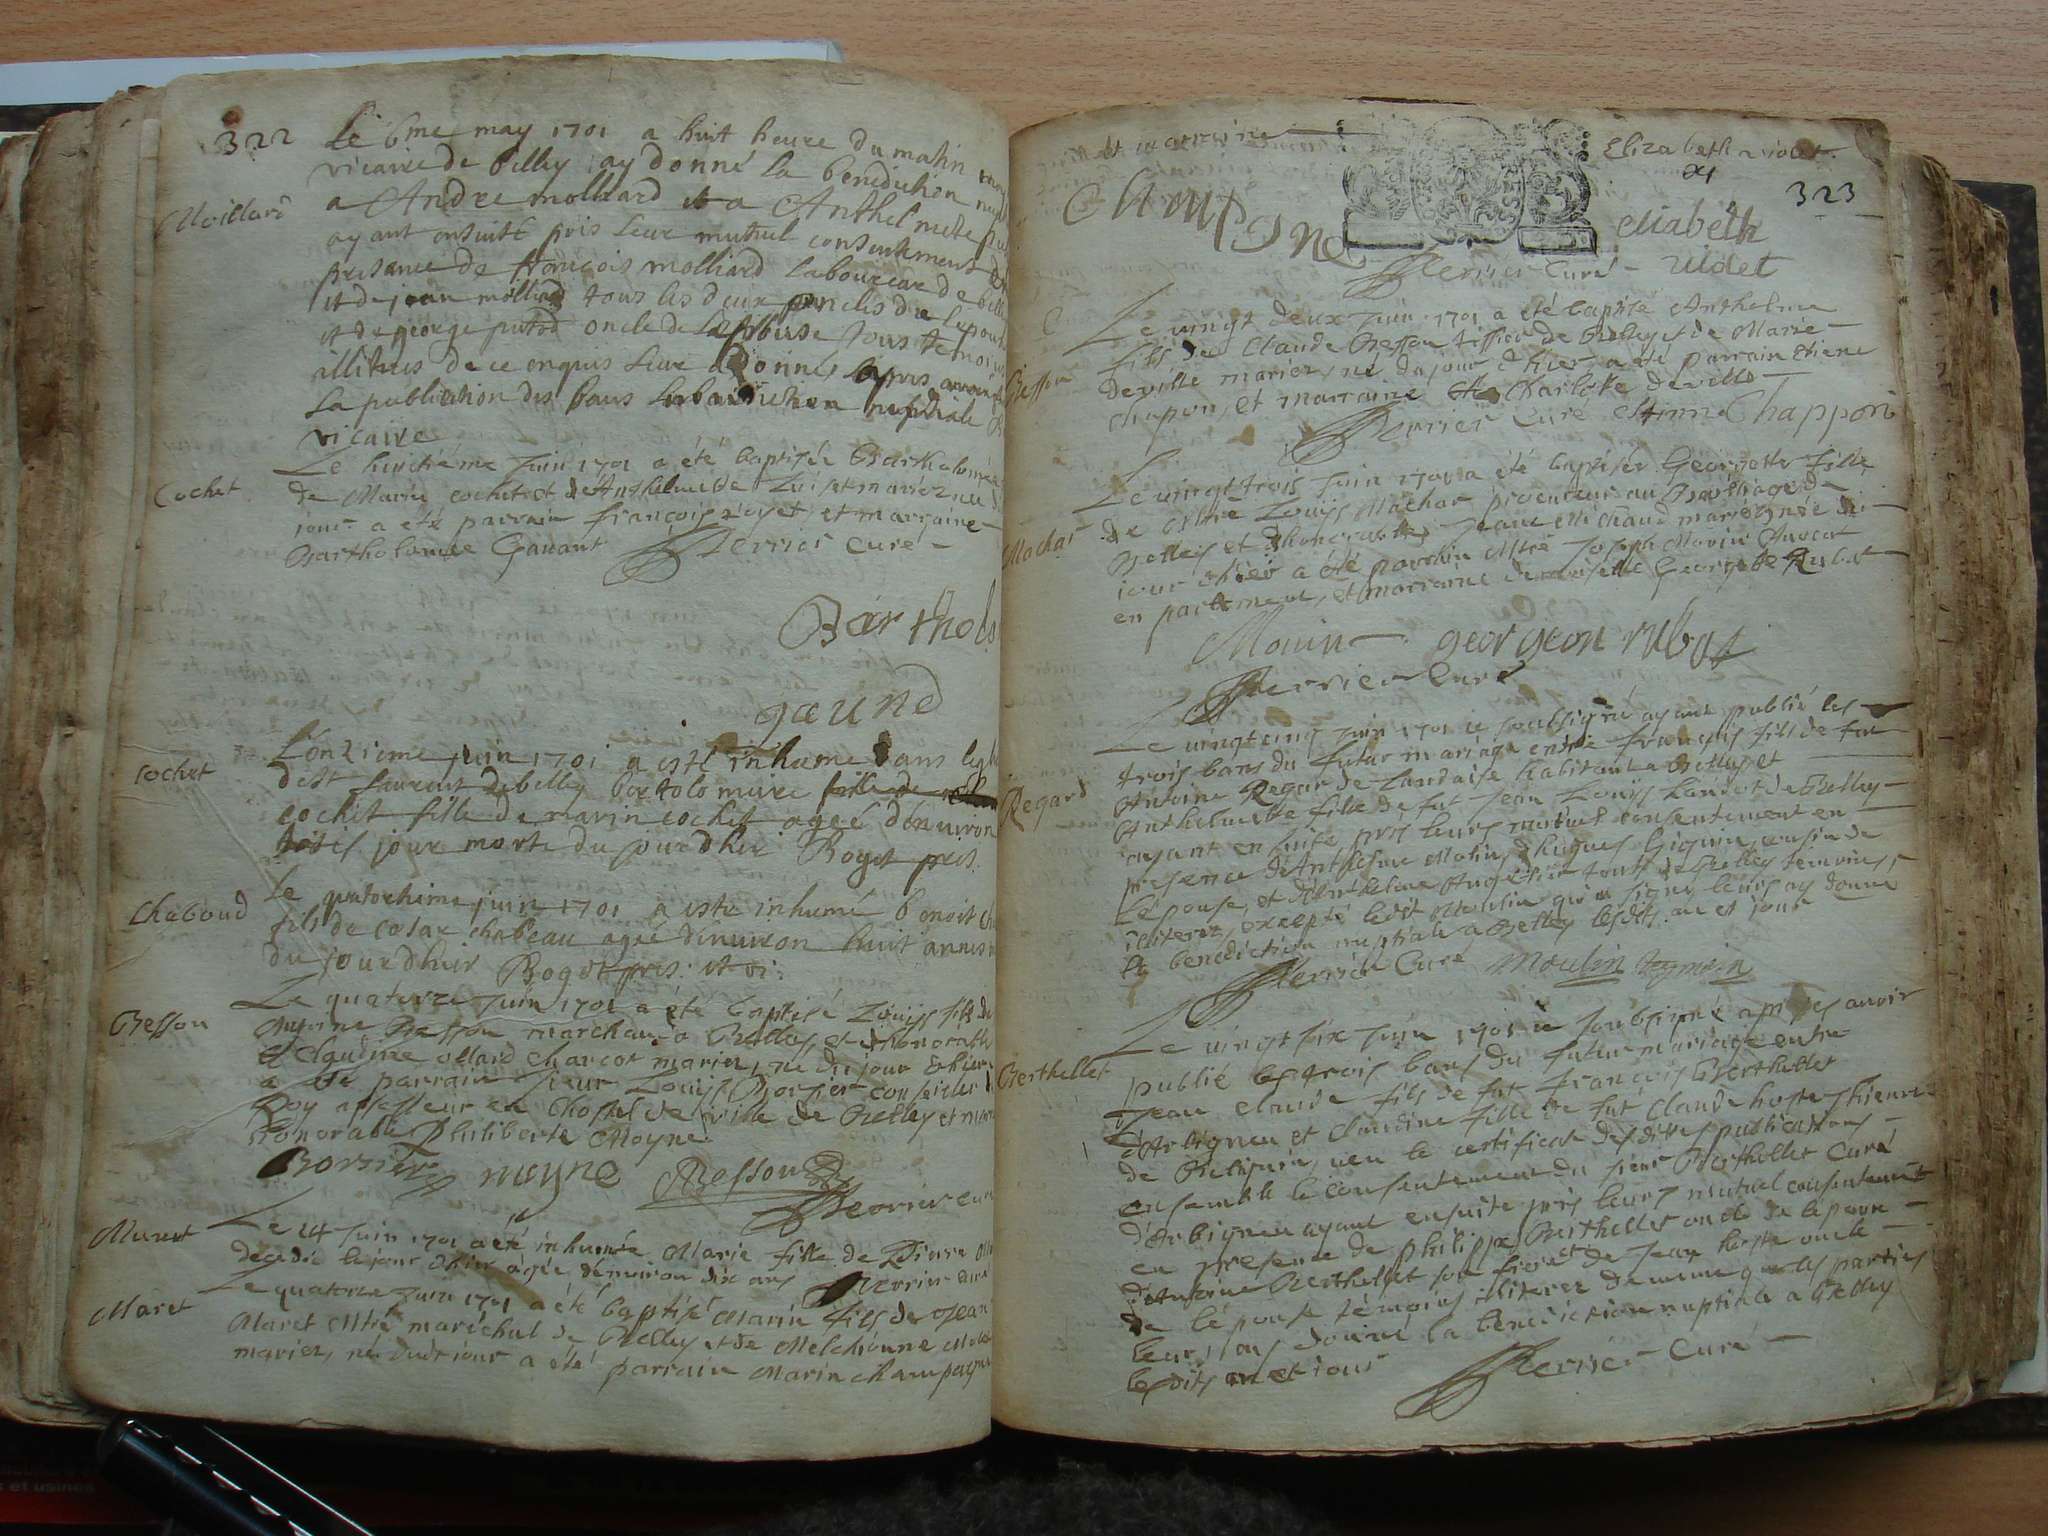 322
Le 6me may 1701 a huit heure du matin
vicaire de belley ay donné la benediction
Moillard
a Andre molliard et a Anthelmete
ayant ensuitte pris leur mutuel consentement
presance de françois molliard laboureur de
et de jean molliard tous les deux oncles de lepoux
et de george putod oncle de Lespouse tous temoins
illitres de ce enquis leur donnés apres avoir
La publication des bans la benediction nuptiale
vicaire
Le huitiéme juin 1701 a été baptisée Bartholomée
Cochet
de Marin cochet et d'Anthelmette mariez née
jour a été parrain François et marraine
Bartholomée Gauant Perrier Curé
Barthols
gaund
L'onzieme juin 1701 a esté inhumé dans
cochet
de st Laurent de belley bartolomiere fille de
cochet fille de marin cochet agee d'enuiron
trois jour morte du jourdhir Boget pres.
Chaboud
le quatorhieme juin 1701 a esté inhumé benoit
fils de cesar chabeau agé denuiron huit annes
du jourdhuir Boget pres: et vi:
Le quatorze juin 1701 a été baptisé Louijs fils de
Besson
Antoine Besson marchand a Belley et d'honorable
Claudine ollard charcot mariez, né du jour d'hier
a été parrain sieur Louijs Borsier conseiller
Roy assesseur en l'hostel de ville de Belley et
honorable Philiberte Moyne
Borsier moyne Besson
Perrier curé
Muret
Le 14 juin 1701 a été inhumée Marie fille de Pierre
decedée le jour d'hier agée d'enuiron dix ans Perrier curé
Le quatorze juin 1701 a été baptisé Marin fils de Jean
Maret
Maret Mtre maréchal de Belley et de Melchionne
mariez, né dudit jour a été parrain Marin champagne
et marraine Elizabeth uiolet
323
Champagne
eliabeth
Perrier Curé uidet
Le vingt deux juin 1701 a été baptisé Anthelme
Besson
fils de Claude Besson tissier de Belley et de Marie
deville mariez, né du jour d'hier a été parrain Etiene
chapon, et marraine Charlotte deville
Perrier Curé estienne Chappon
Le vingt trois juin 1701 a été baptisée Georgette fille
Machar
de Mtre Louijs Machar procureur au Bailliage de
Belley et d'honorable Jeane Michaud mariez née du
jour d'hier a été parrain Mtre Joseph Morin Auocat
en parlement, et marraine demoiselle Georgette Rubat
Mouin georgeon rubat
Perrier Curé
Le vingt cinq juin 1701 ie soubsigné ayant publié les
trois bans du futur mariage entre François fils de fut
Regard
Antoine Regar de Landaise habitant a Belley et
Anthelmette fille de fut Jean Louijs Landot de Belley
ayant en suite pris leurs mutuel consentement en
presence d'Anthelme Molin, d'hugues Giguin, cousin de
l'épouse, et d'Anthelme tous de Belley temoins
illiterez, excepté ledit Moulin qui a signé leurs ay donné
la benediction nuptiale a Belley lesdits an et jour
Perrier Curé Moulin temoin
Le vingt six juin 1701 ie soubsigné apres avoir
Berthellet
publié les trois bans du futur mariage entre
Jean claude fils de fut François Berthellet
d'Arbigneu et Claudine fille de fut Claude hoste
de Belignin, ueu le certificat desdittes publications
ensemble le consentement du sieur Berthellet Curé
d'Arbigneu ayant ensuite pris leurs mutuel consentement
en presence de philippe Berthellet oncle de lepoux
d'Antoine Berthellet son frere et de Jean hoste oncle
de l'épouse témoins illiterez de meme que les parties
leurs ay donné la benediction nuptiale a Belley
lesdits an et jour Perrier Curé